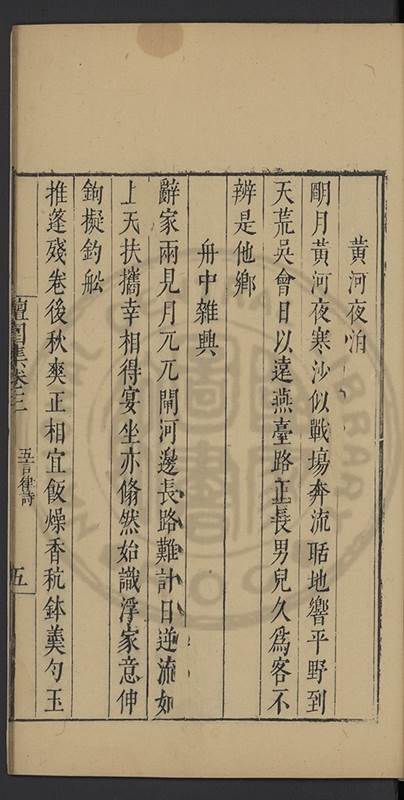 黄河夜泊
明月黄河夜寒沙似戰塲奔流聒地響平野到
天荒吳會日以遠燕臺路正長男兒久爲客不
辨是他鄉
舟中雜興
辭家兩見月兀兀閘河邊長路難計日逆流如
上天扶攜幸相得宴坐亦翛然始識浮家意伸
鉤擬釣舩
推蓬殘卷後秋爽正相宜飯燥香秔鉢羹勺玉
檀園集卷三
五言律詩
五